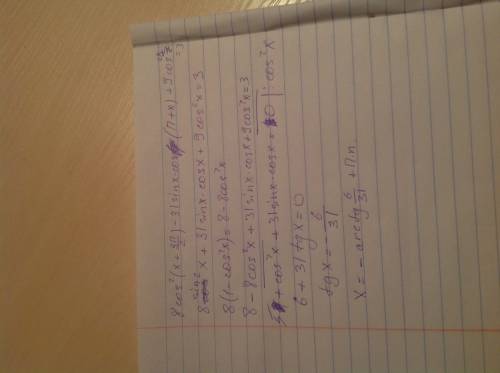 8cos²(x + 3π/2) - 31 sinx·cos(π+x) + 9cos²x = 3
8 sin² x + 31 sinx·cosx + 9cos²x = 3
8(1-cos²x) = 8-8cos²x
8-8cos²x + 31 sinx·cosx + 9cos²x = 3
+ cos²x + 31 sinx·cosx = 0 | : cos²x
6 + 31 tgx = 0
tgx = - 6/31
x = - arctg 6/31 + π.n